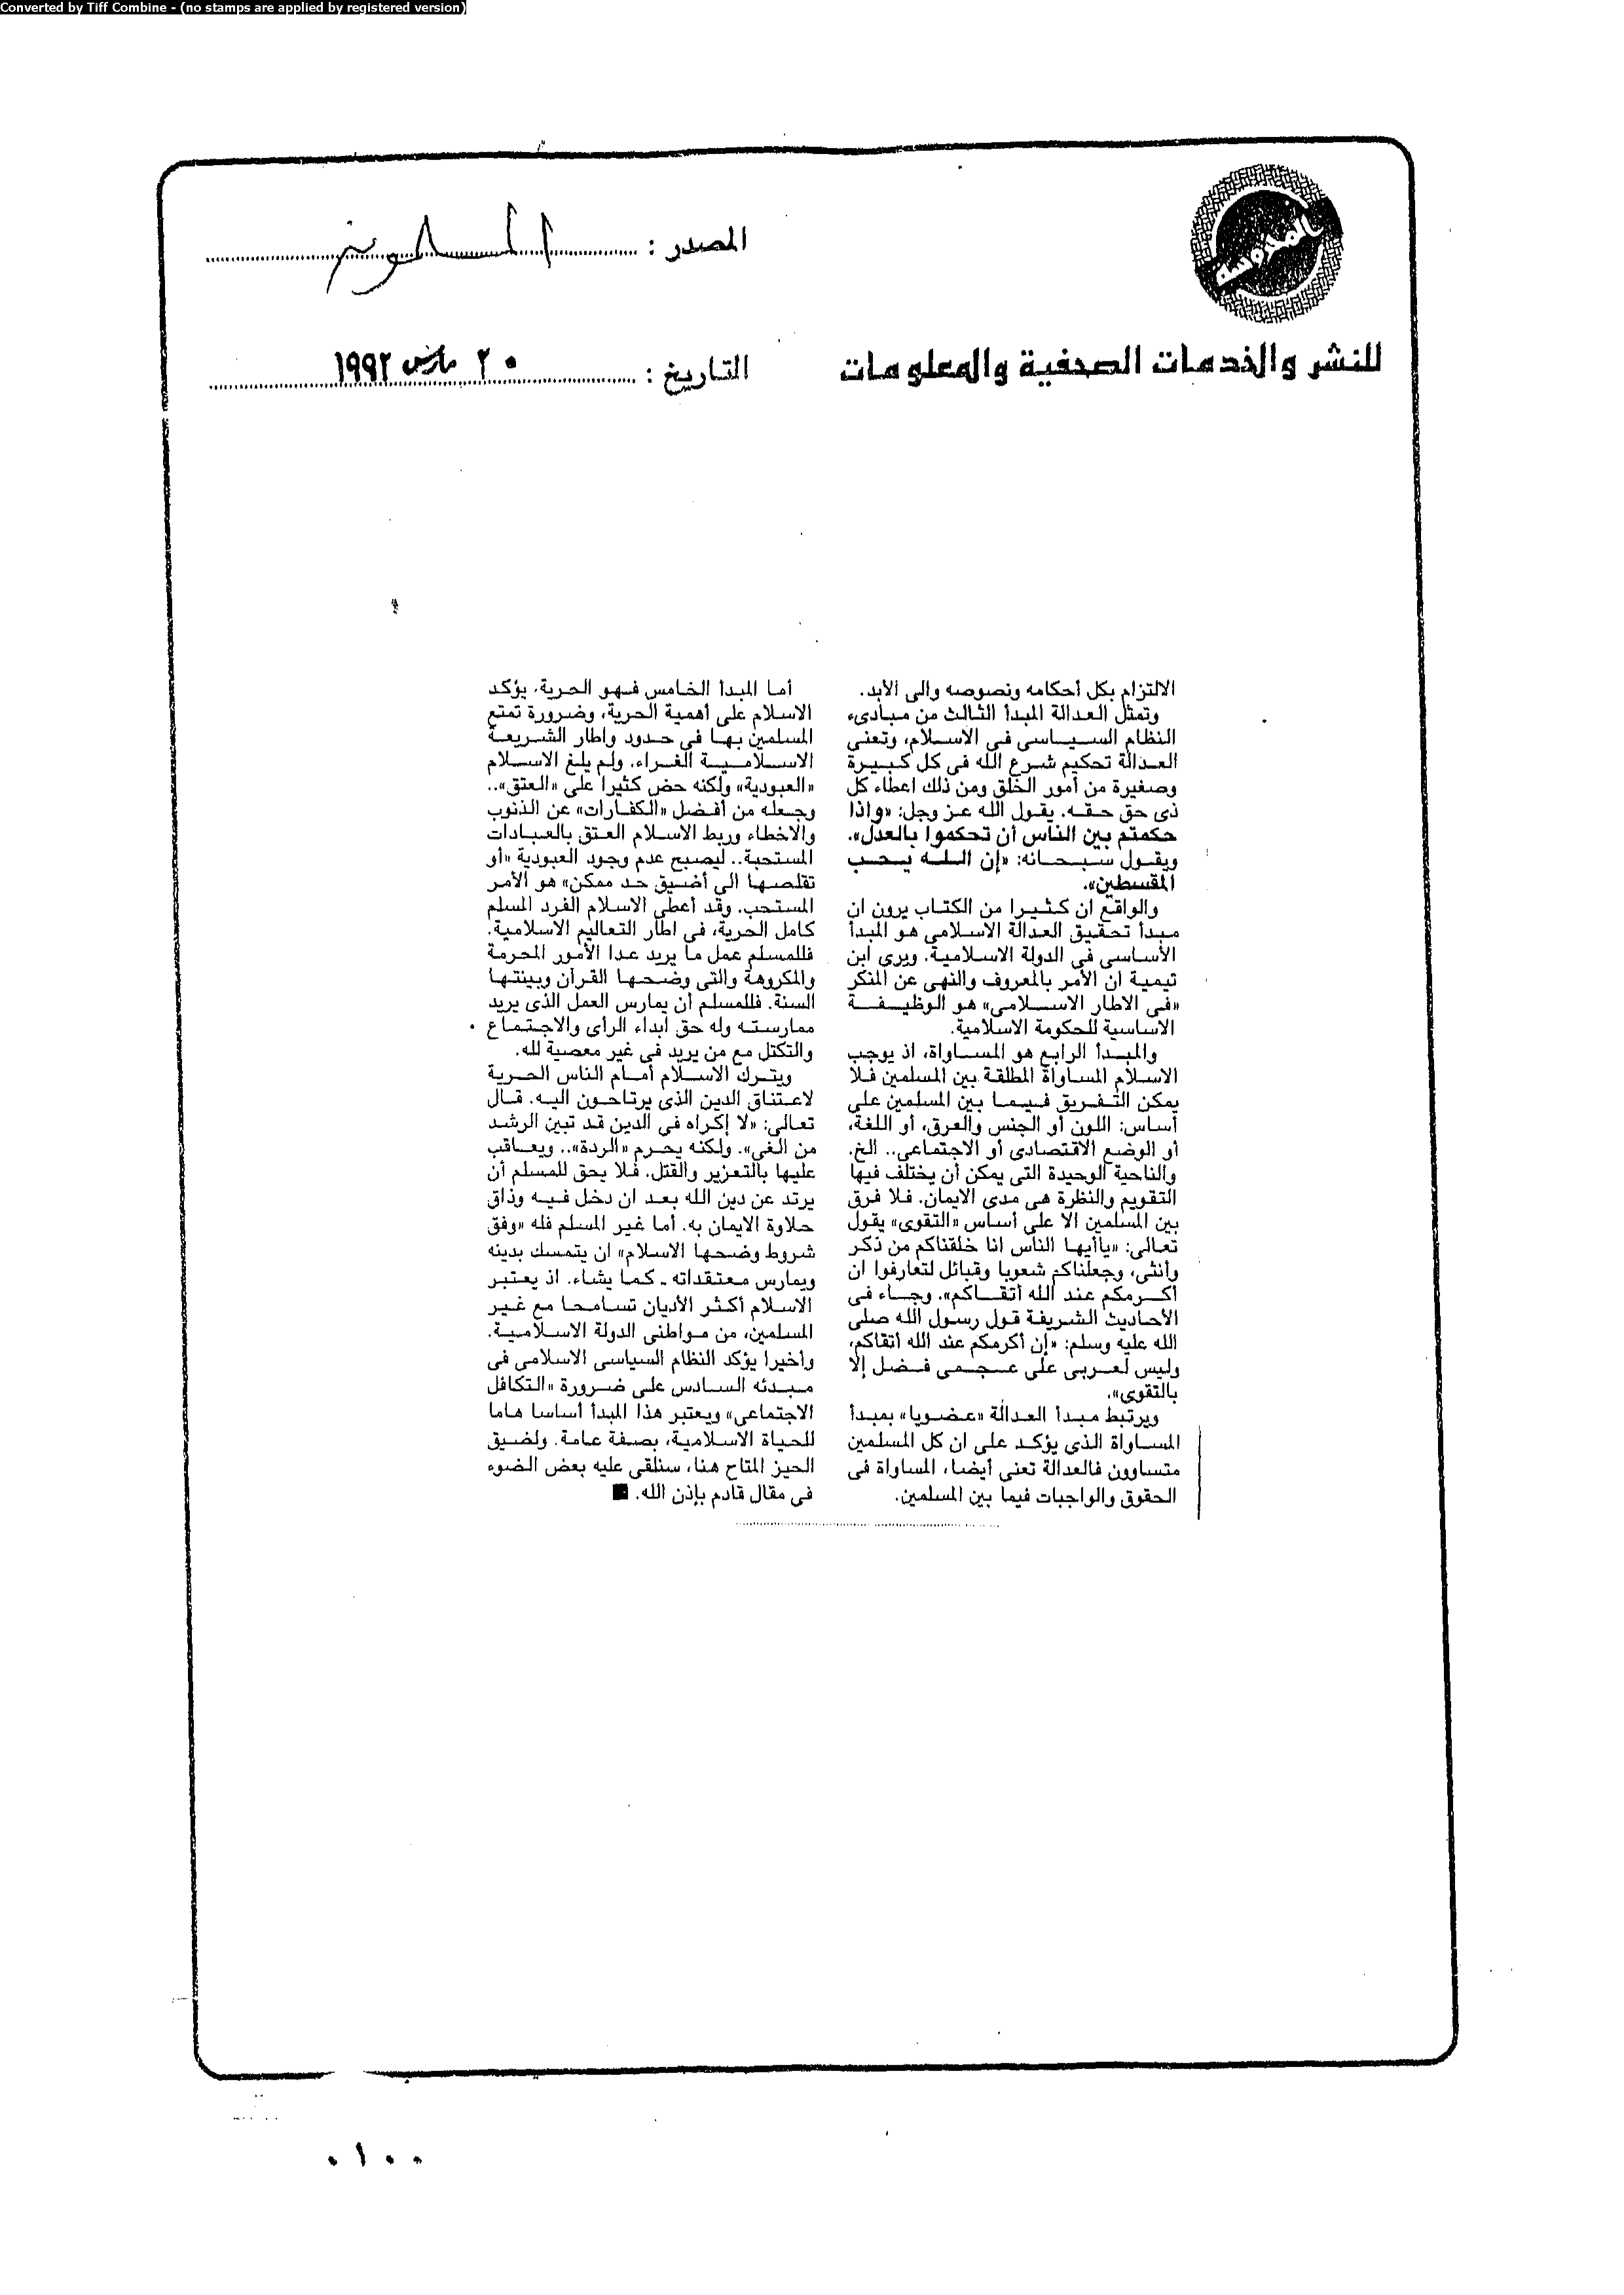 Converted by Tiff Combine - (no stamps are applied by registered version)
المحروسة
للنشر والخدمات الصحفية والمعلومات
المصدر : المسلمون
التاريخ : ٢٠ مارس ١٩٩٢
الالتزام بكل أحكامه ونصوصه والى الأبد.
وتمثل العدالة المبدأ الثالث من مبادىء
النظام السياسى فى الاسلام، وتعنى
العدالة تحكيم شرع الله فى كل كبيرة
وصغيرة من أمور الخلق ومن ذلك اعطاء كل
ذى حق حقه. يقول الله عز وجل: «واذا
حكمتم بين الناس أن تحكموا بالعدل».
ويقول سبحانه: «إن الله يحب
المقسطين».
والواقع ان كثيرا من الكتاب يرون ان
مبدأ تحقيق العدالة الاسلامى هو المبدأ
الأساسى فى الدولة الاسلامية. ويرى ابن
تيمية ان الأمر بالمعروف والنهى عن المنكر
«فى الاطار الاسلامى» هو الوظيفة
الاساسية للحكومة الاسلامية.
والمبدأ الرابع هو المساواة، اذ يوجب
الاسلام المساواة المطلقة بين المسلمين فلا
يمكن التفريق فيما بين المسلمين على
أساس: اللون أو الجنس والعرق، أو اللغة،
أو الوضع الاقتصادى أو الاجتماعى.. الخ.
والناحية الوحيدة التى يمكن أن يختلف فيها
التقويم والنظرة هى مدى الايمان. فلا فرق
بين المسلمين الا على أساس «التقوى» يقول
تعالى: «ياأيها الناس انا خلقناكم من ذكر
وأنثى، وجعلناكم شعوبا وقبائل لتعارفوا ان
أكرمكم عند الله أتقاكم». وجاء فى
الأحاديث الشريفة قول رسول الله صلى
الله عليه وسلم: «إن أكرمكم عند الله أتقاكم،
وليس لعربى على عجمى فضل إلا
بالتقوى».
ويرتبط مبدأ العدالة «عضويا» بمبدأ
المساواة الذى يؤكد على ان كل المسلمين
متساوون فالعدالة تعنى أيضا، المساواة فى
الحقوق والواجبات فيما بين المسلمين.
أما المبدأ الخامس فهو الحرية. يؤكد
الاسلام على أهمية الحرية، وضرورة تمتع
المسلمين بها فى حدود واطار الشريعة
الاسلامية الغراء. ولم يلغ الاسلام
«العبودية» ولكنه حض كثيرا على «العتق»..
وجعله من أفضل «الكفارات» عن الذنوب
والاخطاء وربط الاسلام العتق بالعبادات
المستحبة.. ليصبح عدم وجود العبودية «أو
تقلصها الى أضيق حد ممكن» هو الأمر
المستحب. وقد أعطى الاسلام الفرد المسلم
كامل الحرية، فى اطار التعاليم الاسلامية.
فللمسلم عمل ما يريد عدا الأمور المحرمة
والمكروهة والتى وضحها القرآن وبينتها
السنة. فللمسلم أن يمارس العمل الذى يريد
ممارسته وله حق ابداء الرأى والاجتماع
والتكتل مع من يريد فى غير معصية لله.
ويترك الاسلام أمام الناس الحرية
لاعتناق الدين الذى يرتاحون اليه. قال
تعالى: «لا إكراه فى الدين قد تبين الرشد
من الغى». ولكنه يحرم «الردة».. ويعاقب
عليها بالتعزير والقتل. فلا يحق للمسلم أن
يرتد عن دين الله بعد ان دخل فيه وذاق
حلاوة الايمان به. أما غير المسلم فله «وفق
شروط وضحها الاسلام» ان يتمسك بدينه
ويمارس معتقداته ـ كما يشاء. اذ يعتبر
الاسلام أكثر الأديان تسامحا مع غير
المسلمين، من مواطنى الدولة الاسلامية.
وأخيرا يؤكد النظام السياسى الاسلامى فى
مبدئه السادس على ضرورة «التكافل
الاجتماعى» ويعتبر هذا المبدأ أساسا هاما
للحياة الاسلامية، بصفة عامة. ولضيق
الحيز المتاح هنا، سنلقى عليه بعض الضوء
فى مقال قادم بإذن الله. ■
٠١٠٠